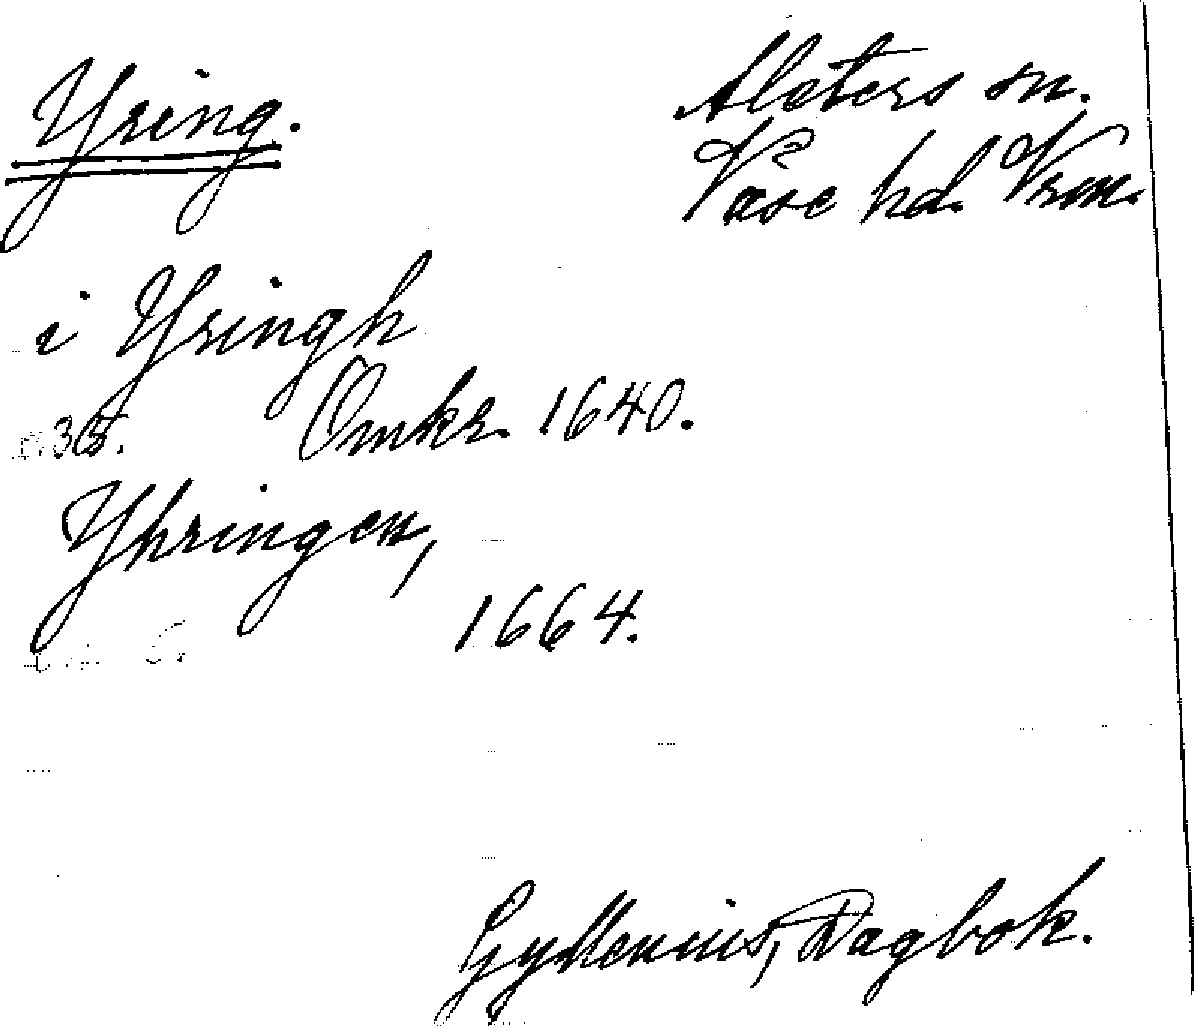 Yring.
Alsters sn.
Väse hd. Vrm.
i Yringh
35. Omkr. 1640.
Yhringen,
1664.
Gyllenius, Dagbok.